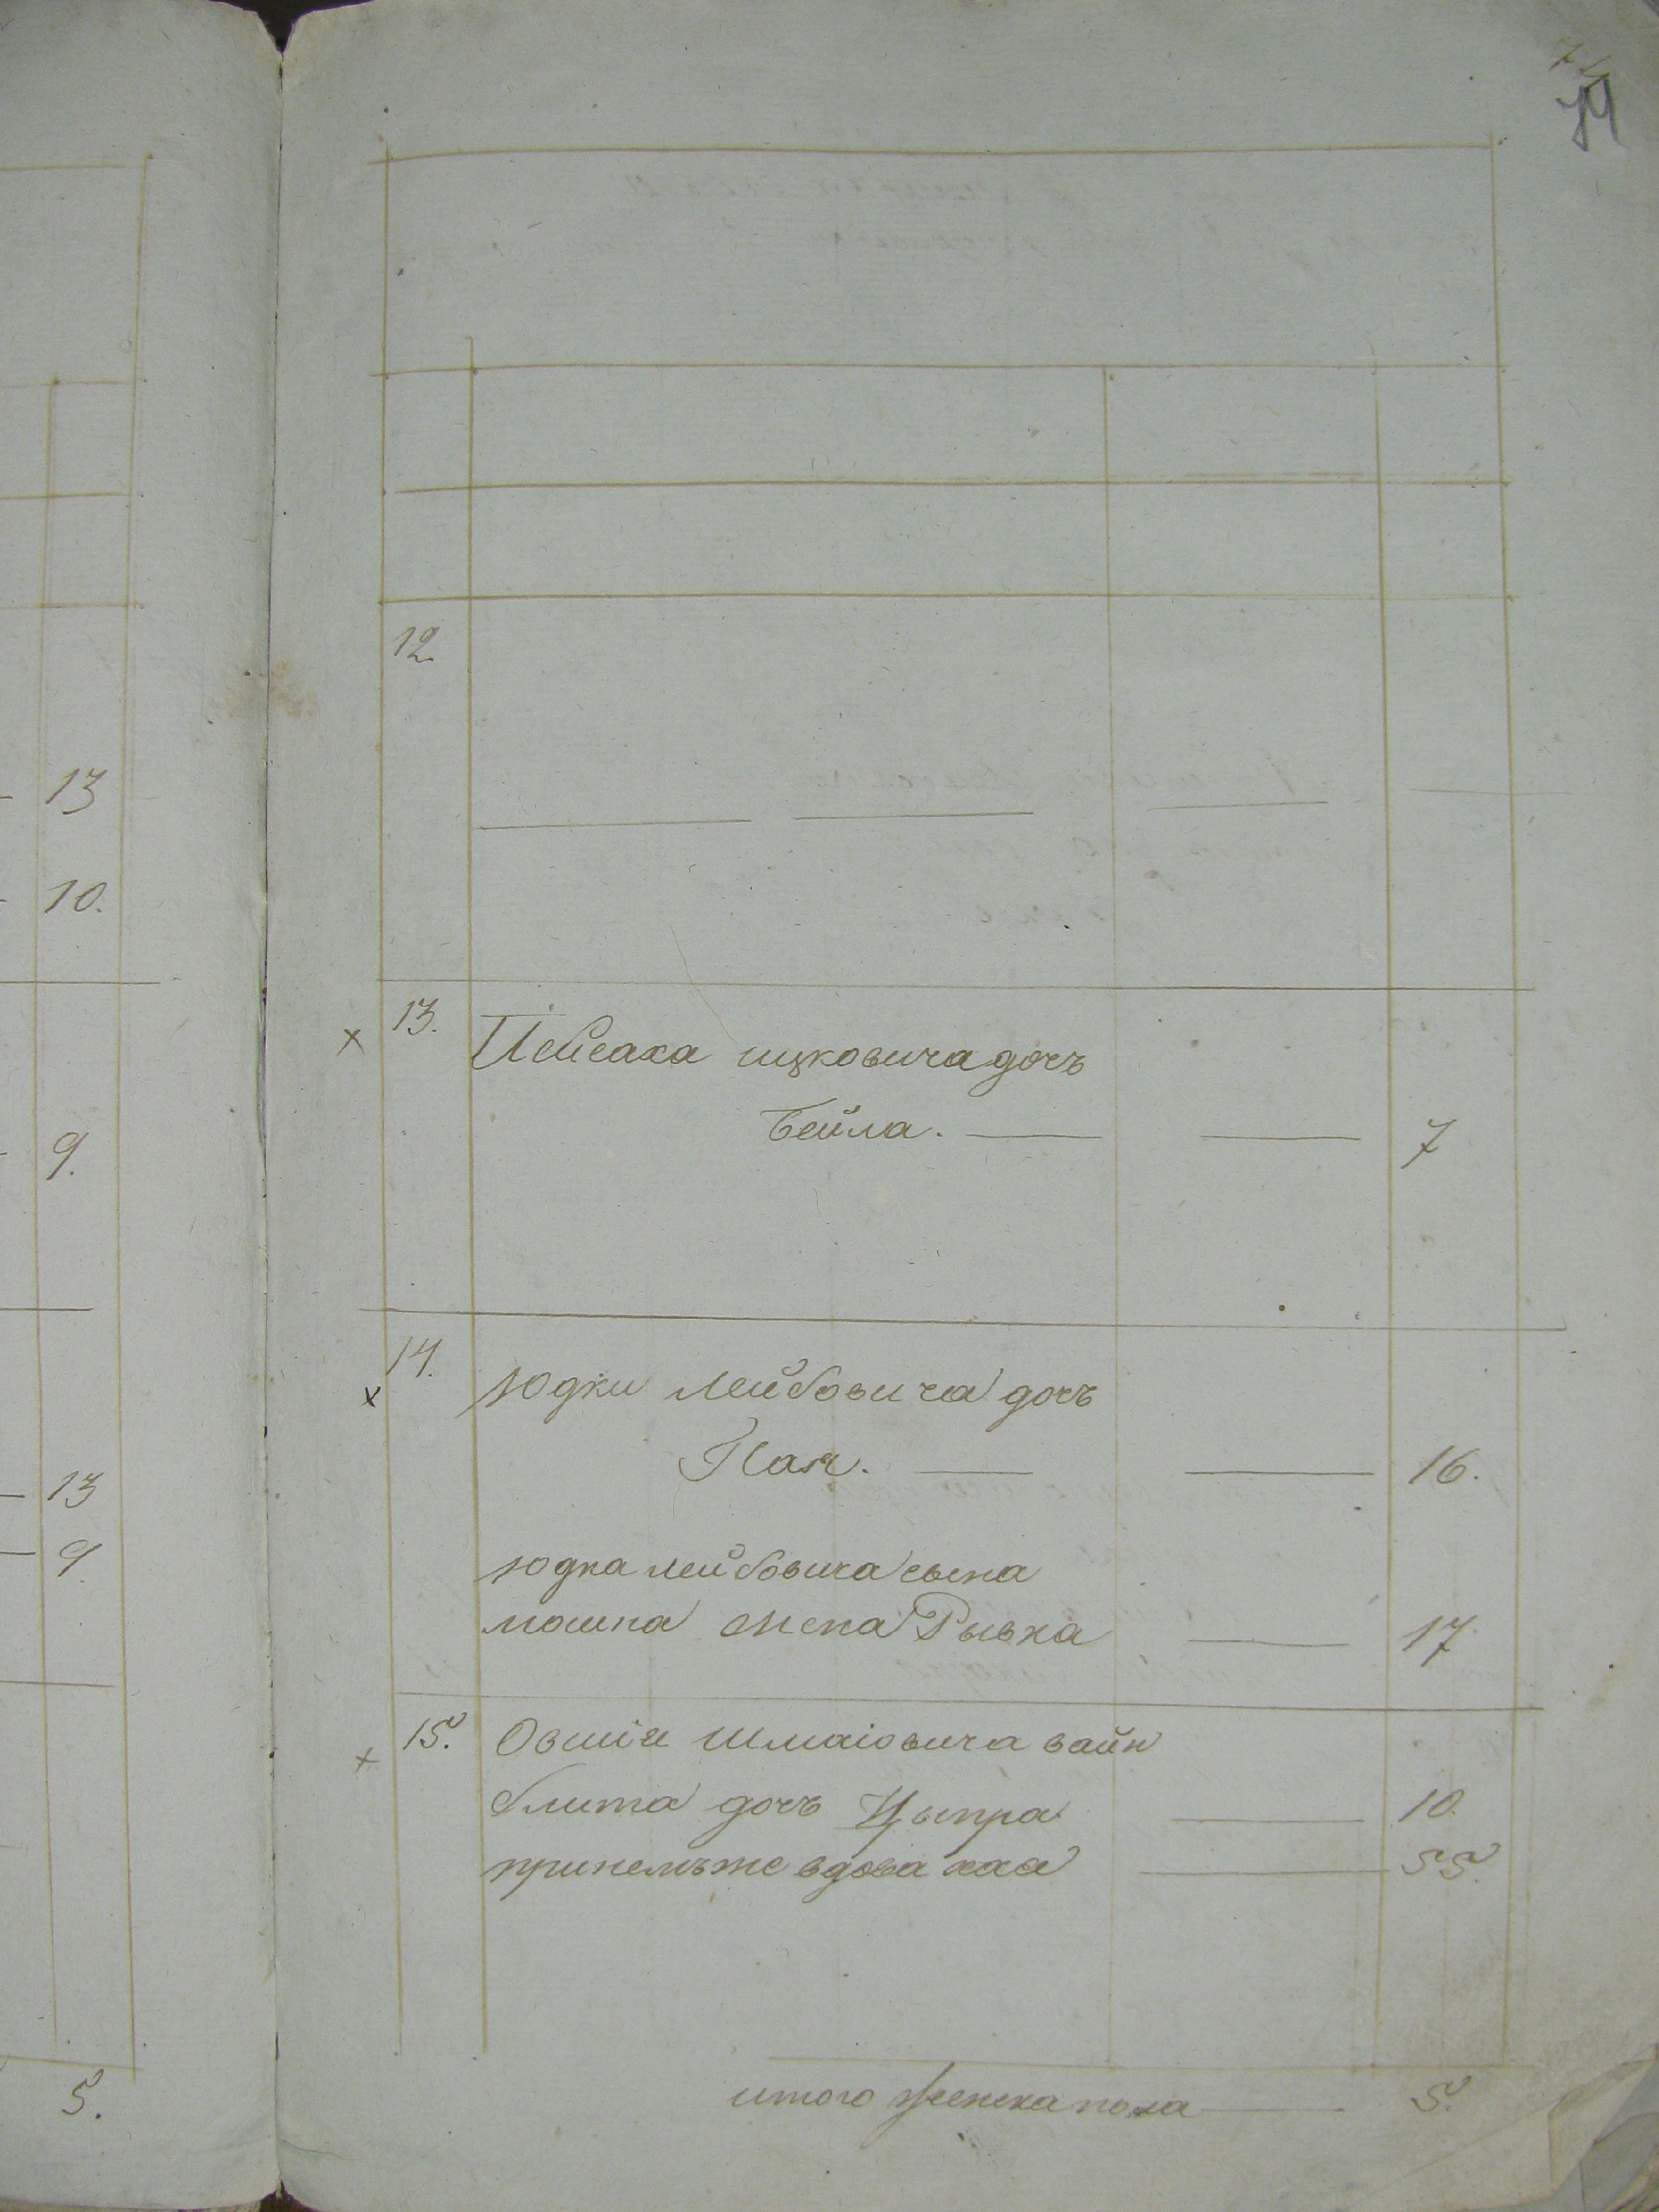 74
13
10.
9.
13
9.
5.
12.
13. Пейсаха ицковича дочъ
Бейла. 7
14. Юдки Лейбовича дочъ
Пая. 16.
Юдка лейбовича сына
мошка жена Рывка 17.
15. Овшія Шмаіовича вайн
блита дочъ Ципра 10.
принемъже вдова хая 55.
итого женска пола 5.